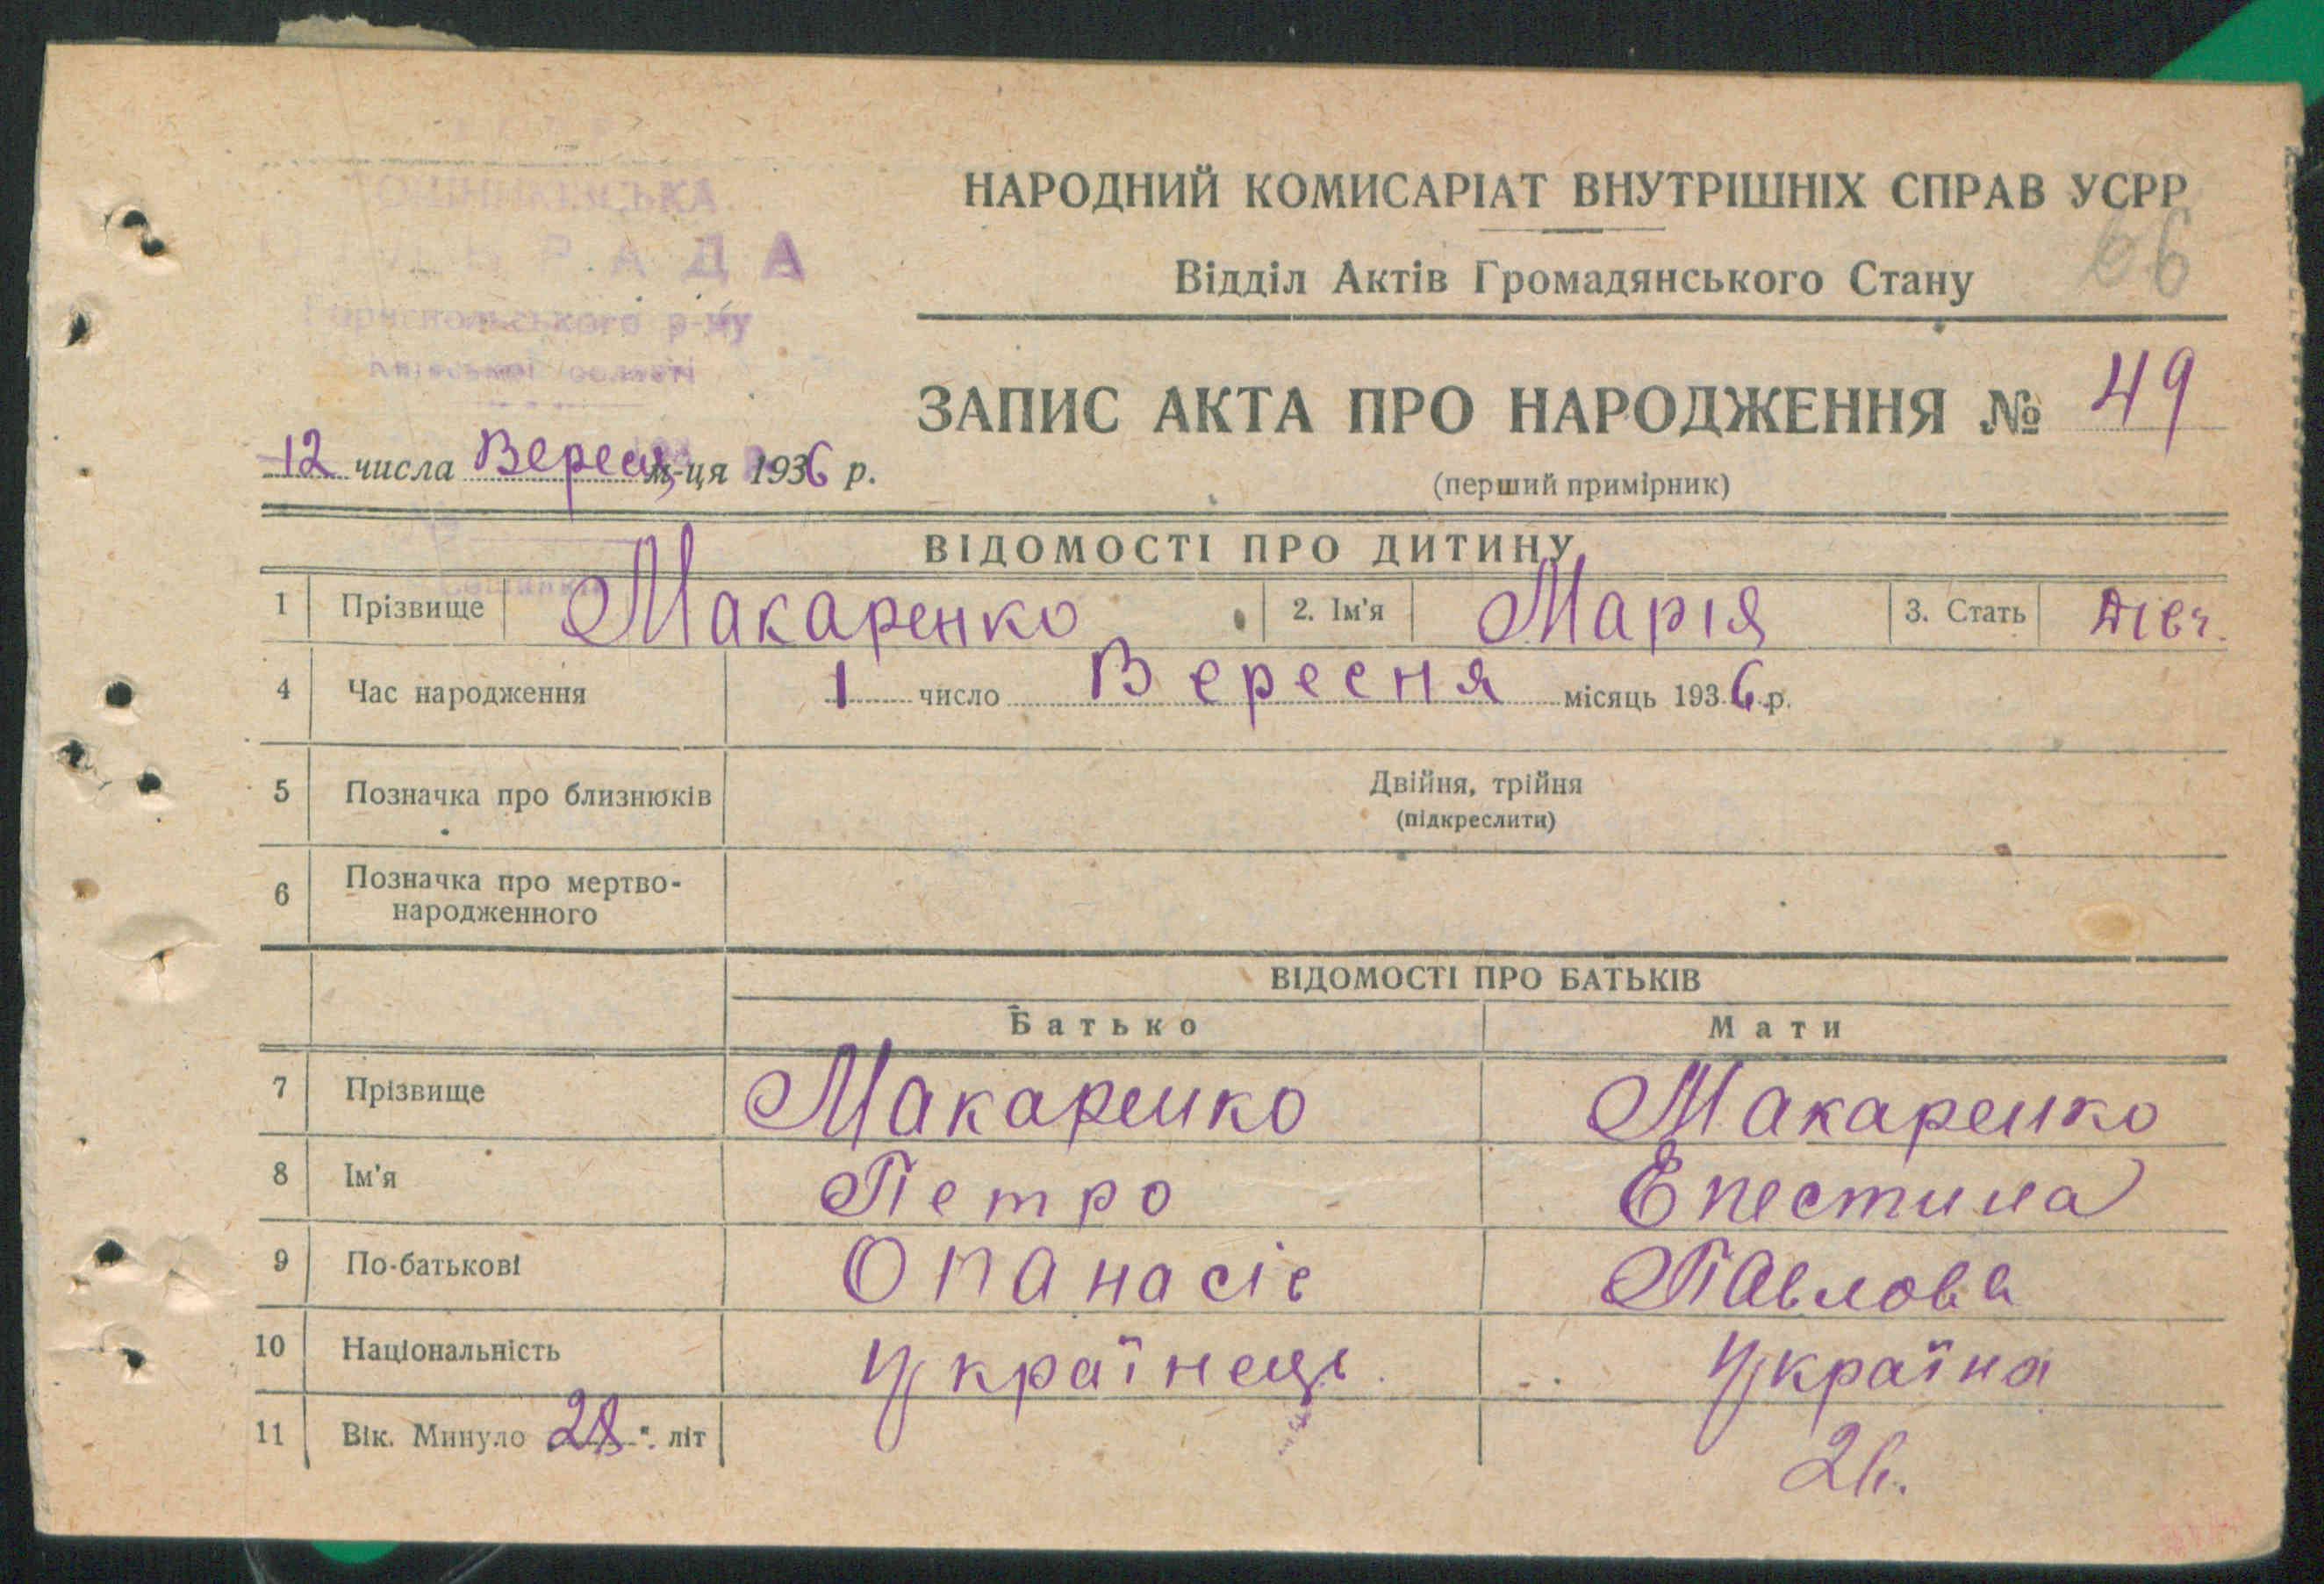 РАДА
р-ну
Київської області
НАРОДНИЙ КОМИСАРІАТ ВНУТРІШНІХ СПРАВ УСРР
66
Відділ Актів Громадянського Стану
ЗАПИС АКТА ПРО НАРОДЖЕННЯ № 49
12 числа Вересн м-ця 1936 р.
(перший примірник)
ВІДОМОСТІ ПРО ДИТИНУ
1 Прізвище Макаренко 2. Ім'я Марія 3. Стать дівч.
4 Час народження 1 число Вересня місяць 1936 р.
5 Позначка про близнюків Двійня, трійня
(підкреслити)
6 Позначка про мертво-
народженного
ВІДОМОСТІ ПРО БАТЬКІВ
Батько Мати
7 Прізвище Макаренко Макаренко
8 Ім'я Петро Епестина
9 По-батькові Опанасів Павлова
10 Національність Українець Україна
11 Вік. Минуло 28 літ 26.